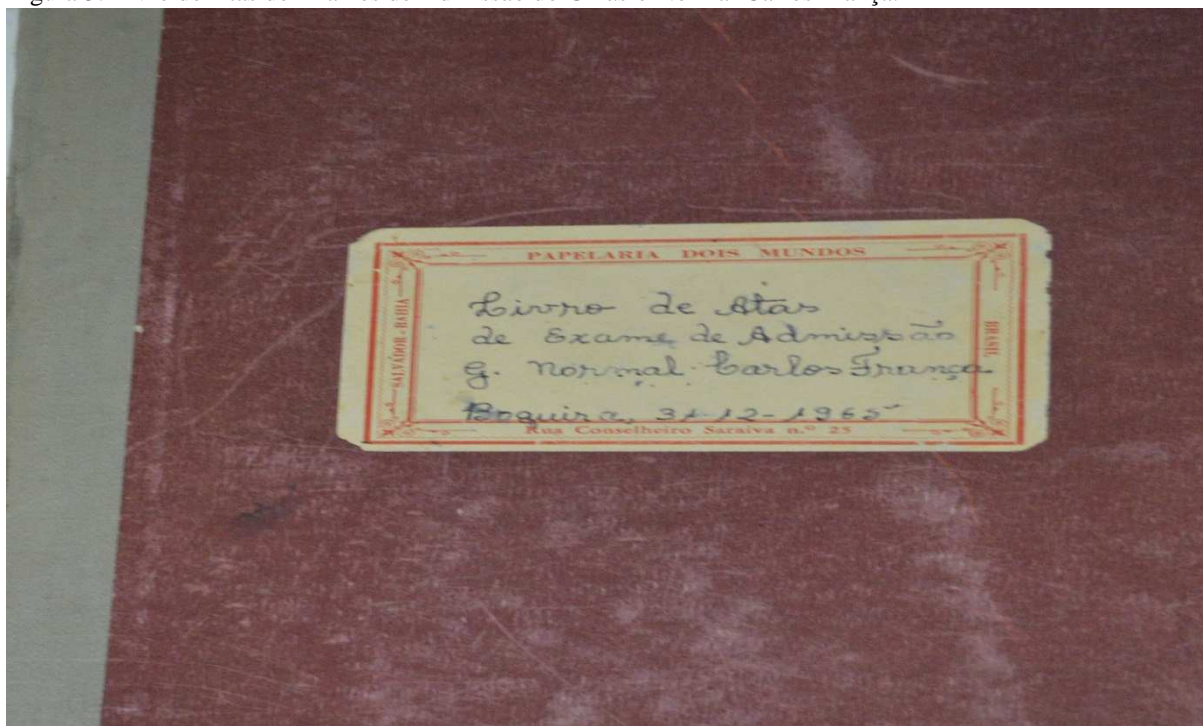 PAPELARIA DOIS MUNDOS
SALVADOR - BAHIA
BRASIL
Livro de Atas
de Exame de Admissão
G. Normal Carlos França
Boquira, 31-12-1965
Rua Conselheiro Saraiva n.º 25